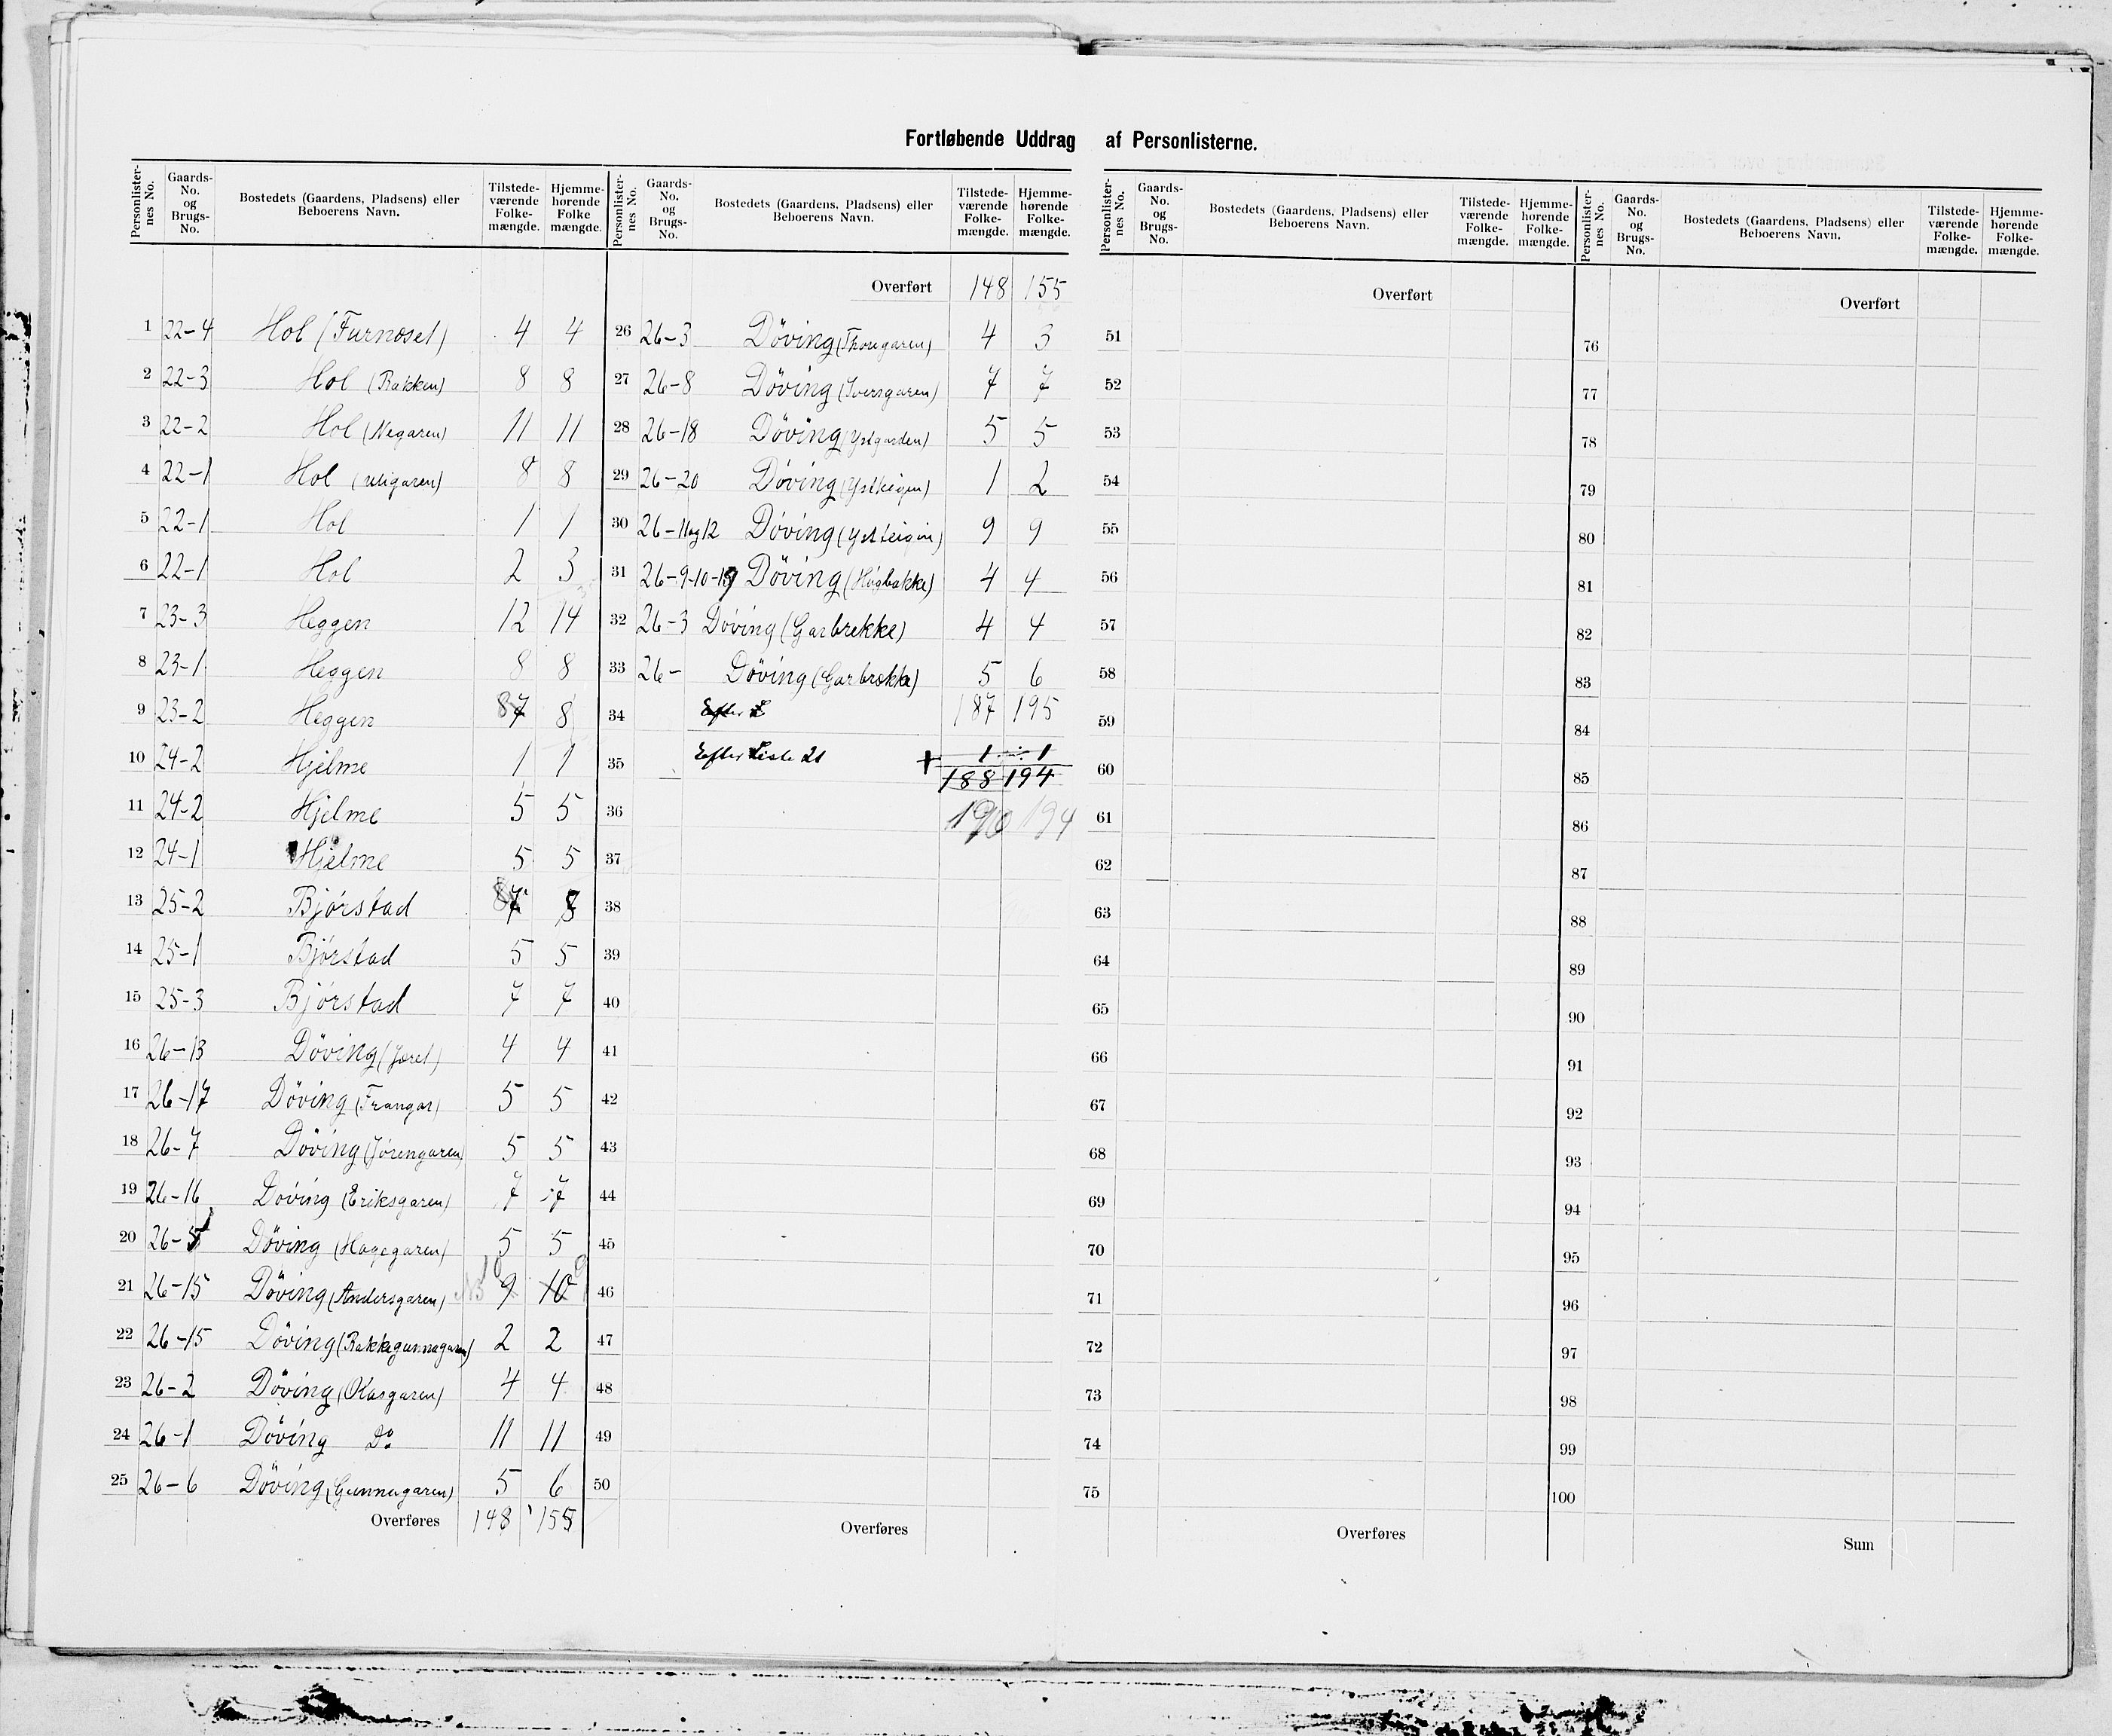 Fortløbende Uddrag af Personlisterne.
Personlister-nes No. Gaards-No. og Brugs-No. Bostedets (Gaardens, Pladsens) eller Beboerens Navn. Tilstede-værende Folke-mængde. Hjemme-hørende Folke mængde.
1 22-4 Hol (Furnoset) 4 4
2 22-3 Hol (Bakken) 8 8
3 22-2 Hol (Negaren) 11 11
4 22-1 Hol 8 8
5 22-1 Hol 1 1
6 22-1 Hol 2 3
7 23-3 Heggen 12 14
8 23-1 Heggen 8 8
9 23-2 Heggen 87 8
10 24-2 Hjelme 1 1
11 24-2 Hjelme 5 5
12 24-1 Hjelme 5 5
13 25-2 Bjórstad 87 8
14 25-1 Bjórstad 5 5
15 25-3 Bjórstad 7 7
16 26-13 Döving (Joret) 4 4
17 26-17 Döving (Frangar) 5 5
18 26-7 Döving (Jörengaren) 5 5
19 26-16 Döving (Eriksgaren) 7 7
20 26-5 Döving (Hagegaren) 5 5
21 26-15 Döving (Andersgaren) NB 9 10 10 9
22 26-15 Döving (Bakkegunnagaren) 2 2
23 26-2 Döving (Olasgaren) 4 4
24 26-1 Döving Do 11 11
25 26-6 Döving (Gunnagaren) 5 6
Overføres 148 155
Personlister-nes No. Gaards-No. og Brugs-No. Bostedets (Gaardens, Pladsens) eller Beboerens Navn. Tilstede-værende Folke-mængde. Hjemme-hørende Folke-mængde.
Overført 148 155
26 26-3 Döving (Thorgaren) 4 3
27 26-8 Döving (Iversgaren) 7 7
28 26-18 Döving (Ystgarden) 5 5
29 26-20 Döving (Ystteigen) 1 2
30 26-11og12 Döving (Ystteigin) 9 9
31 26-9-10-19 Döving (Högbakke) 4 4
32 26-3 Döving (Garbrekke) 4 4
33 26- Döving (Garbrekke) 5 6
34 Efter L 187 195
35 Efter Liste 21 + 1 ÷ 1
188 194
36 190 194
37
38
39
40
41
42
43
44
45
46
47
48
49
50
Overføres
Personlister-nes No. Gaards-No. og Brugs-No. Bostedets (Gaardens, Pladsens) eller Beboerens Navn. Tilstede-værende Folke-mængde. Hjemme-hørende Folke-mængde.
Overført
51
52
53
54
55
56
57
58
59
60
61
62
63
64
65
66
67
68
69
70
71
72
73
74
75
Overføres
Personlister-nes No. Gaards-No. og Brugs-No. Bostedets (Gaardens, Pladsens) eller Beboerens Navn. Tilstede-værende Folke-mængde. Hjemme-hørende Folke-mængde.
Overført
76
77
78
79
80
81
82
83
84
85
86
87
88
89
90
91
92
93
94
95
96
97
98
99
100
Sum